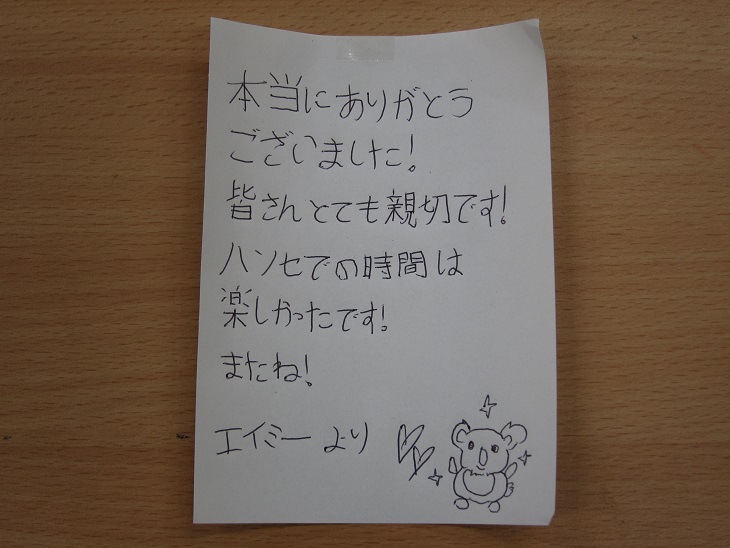 本当にありがとう
ございました!
皆さんとても親切です!
ハンセでの時間は
楽しかったです!
またね!
エイミーより